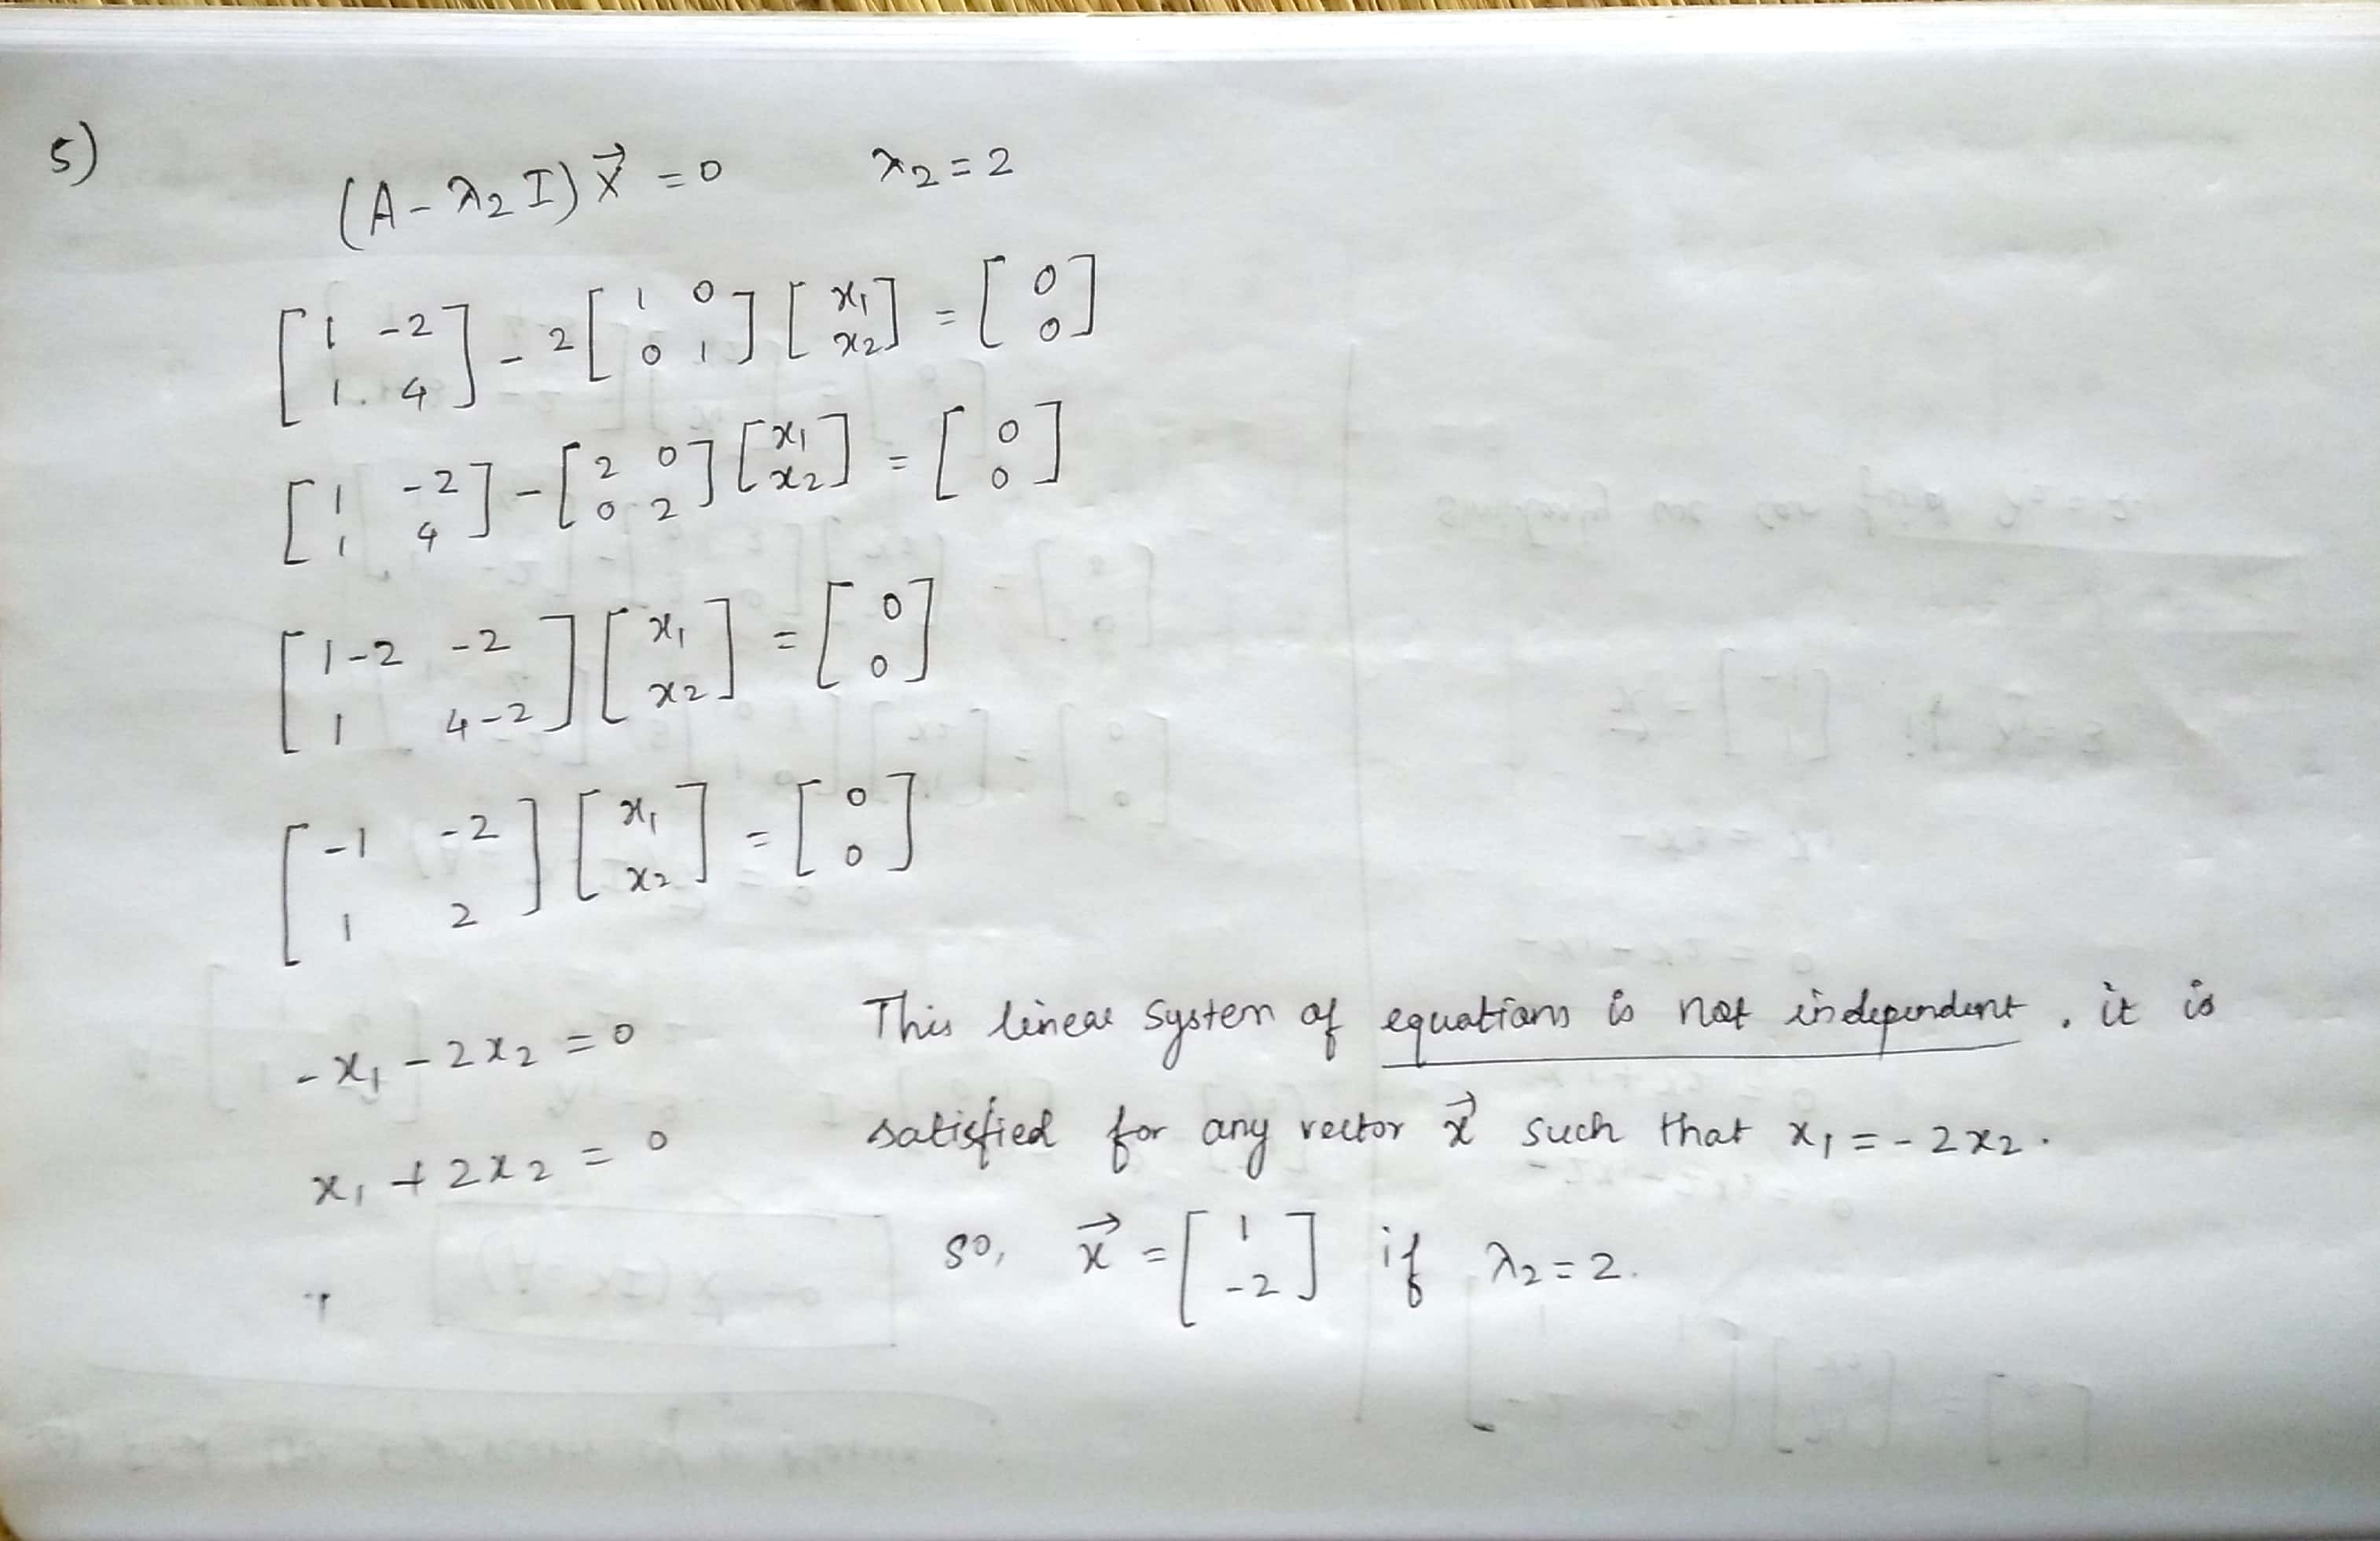 5)
(A - λ₂ I) x⃗ = 0    λ₂ = 2
[1 -2; 1. 4] - 2 [1 0; 0 1] [x₁; x₂] = [0; 0]
[1 -2; 1 4] - [2 0; 0 2] [x₁; x₂] = [0; 0]
[1-2 -2; 1 4-2] [x₁; x₂] = [0; 0]
[-1 -2; 1 2] [x₁; x₂] = [0; 0]
-x₁ - 2x₂ = 0    This linear system of equations is not independent, it is
x₁ + 2x₂ = 0    satisfied for any vector x⃗ such that x₁ = -2x₂.
so, x⃗ = [1; -2] if λ₂ = 2.